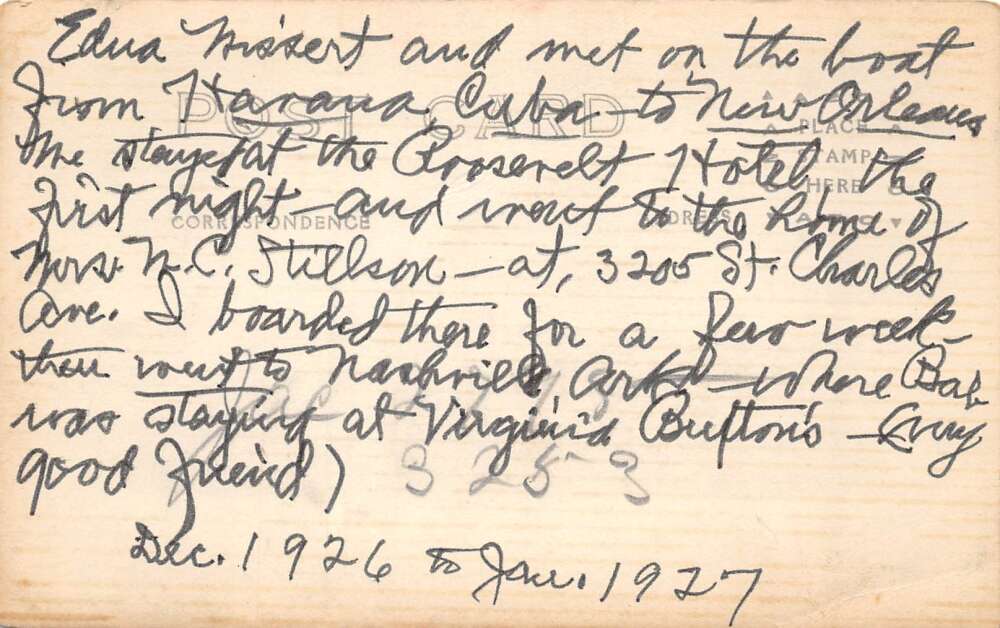 Edna and met on the boat
From Havana, Cuba to New Orleans
We stayed at the Roosevelt Hotel, the
First night - and went to the home of
Mrs. N.C. Stillson - at, 3205 St. Charles
Ave. I boarded there for a few week-
then went to Nashville Ark - where Bab
was staying at Virginia - (very
good friend)
Dec. 1926 to Jan. 1927
POST CARD
CORRESPONDENCE
ADDRESS
PLACE
STAMP
HERE
3253